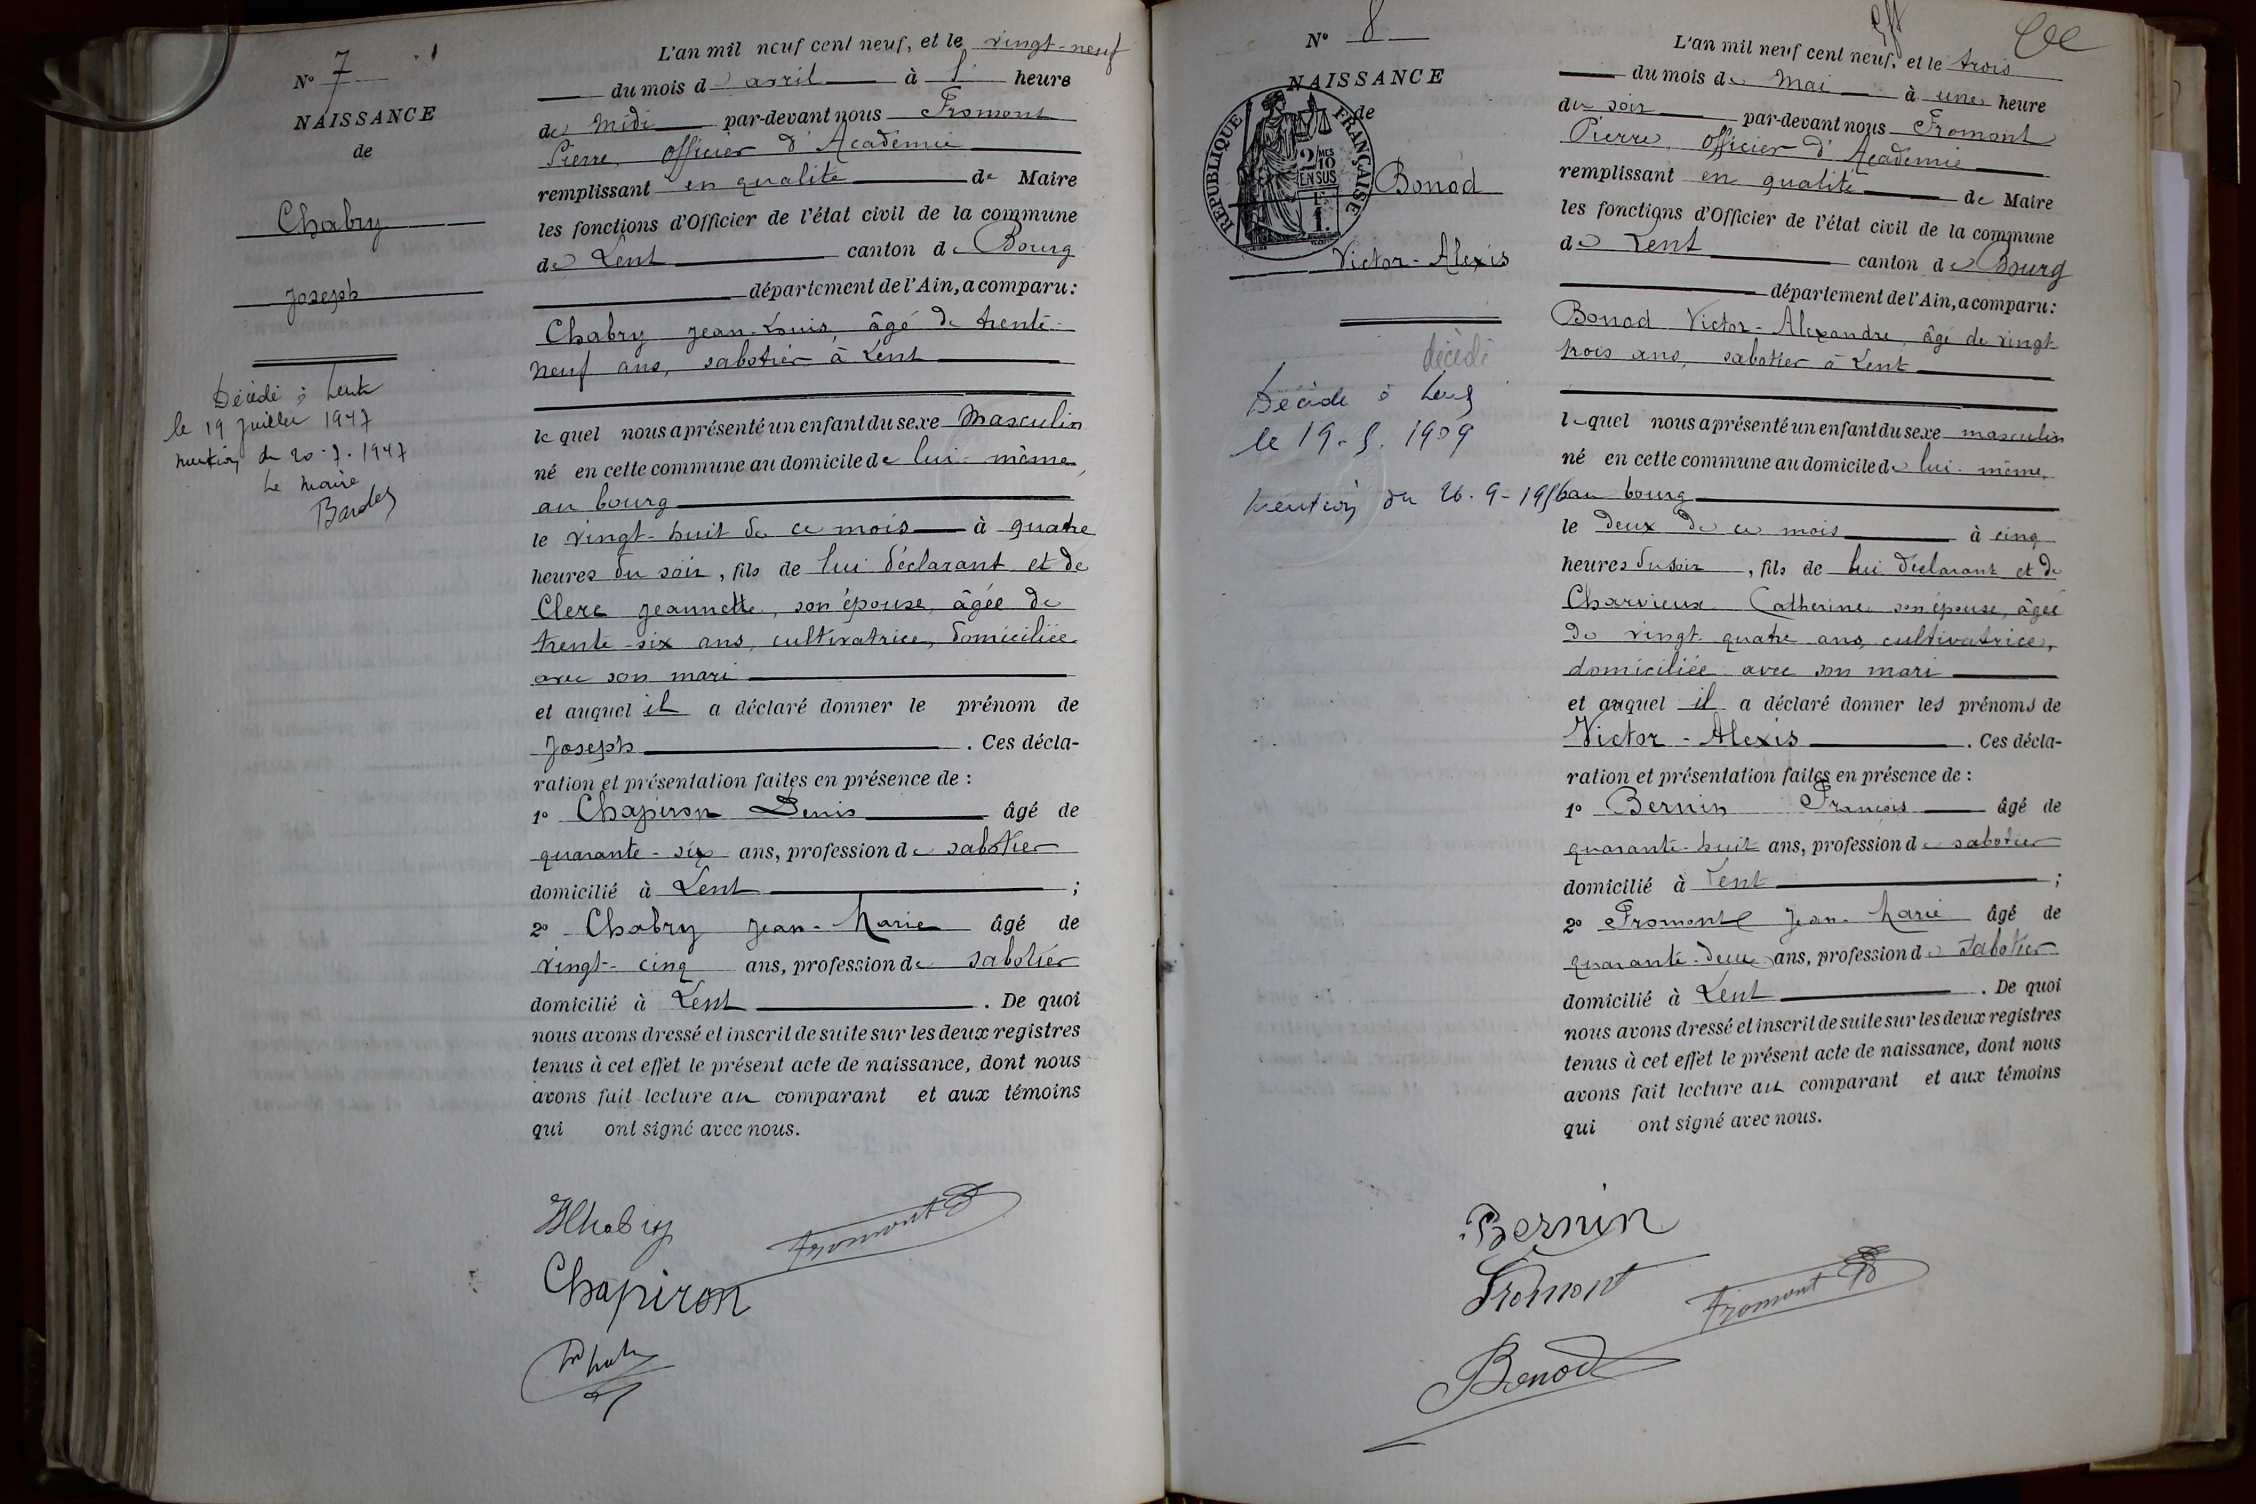 N° 7
NAISSANCE
de
Chabry
Joseph
Décédé à Lent
le 19 juillet 1947
mention du 20-7-1947
Le Maire
L'an mil neuf cent neuf, et le vingt-neuf
du mois d avril à l' heure
de Midi par-devant nous Fromont
Pierre, Officier d'Académie
remplissant en qualité de Maire
les fonctions d'Officier de l'état civil de la commune
de Lent canton de Bourg
département de l'Ain, a comparu:
Chabry Jean-Louis, âgé de trente-
neuf ans, sabotier à Lent
lequel nous a présenté un enfant du sexe Masculin
né en cette commune au domicile de lui-même,
au bourg
le vingt-huit de ce mois à quatre
heures du soir, fils de lui déclarant et de
Clerc Jeannette, son épouse, âgée de
trente-six ans, cultivatrice, domiciliée
avec son mari
et auquel il a déclaré donner le prénom de
Joseph. Ces décla-
ration et présentation faites en présence de :
1° Chapiron Denis âgé de
quarante-six ans, profession de sabotier
domicilié à Lent ;
2° Chabry Jean-Marie âgé de
vingt-cinq ans, profession de sabotier
domicilié à Lent. De quoi
nous avons dressé et inscrit de suite sur les deux registres
tenus à cet effet le présent acte de naissance, dont nous
avons fait lecture au comparant et aux témoins
qui ont signé avec nous.
Chabry
Fromont
Chapiron
N° 8
NAISSANCE
de
REPUBLIQUE FRANÇAISE
2/10 MES
EN SUS
1 F.
Bonod
Victor-Alexis
décédé
Décédé à Lent
le 19-5-1909
mention du 26-9-1956
L'an mil neuf cent neuf, et le trois
du mois de Mai à une heure
du soir par-devant nous Fromont
Pierre, Officier d'Académie
remplissant en qualité de Maire
les fonctions d'Officier de l'état civil de la commune
de Lent canton de Bourg
département de l'Ain, a comparu:
Bonod Victor-Alexandre, âgé de vingt-
trois ans, sabotier à Lent
lequel nous a présenté un enfant du sexe masculin
né en cette commune au domicile de lui-même,
au bourg
le deux de ce mois à cinq
heures du soir, fils de lui déclarant et de
Charvieux Catherine son épouse, âgée
de vingt-quatre ans, cultivatrice,
domiciliée avec son mari
et auquel il a déclaré donner les prénoms de
Victor-Alexis. Ces décla-
ration et présentation faites en présence de :
1° Bernin François âgé de
quarante-huit ans, profession de sabotier
domicilié à Lent ;
2° Fromont Jean-Marie âgé de
quarante-deux ans, profession de sabotier
domicilié à Lent. De quoi
nous avons dressé et inscrit de suite sur les deux registres
tenus à cet effet le présent acte de naissance, dont nous
avons fait lecture au comparant et aux témoins
qui ont signé avec nous.
Bernin
Fromont
Fromont
Bonod